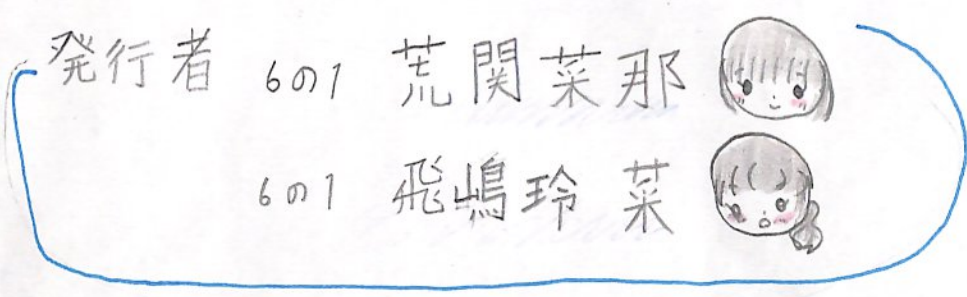 発行者 6の1 荒関菜那
6の1 飛嶋玲菜